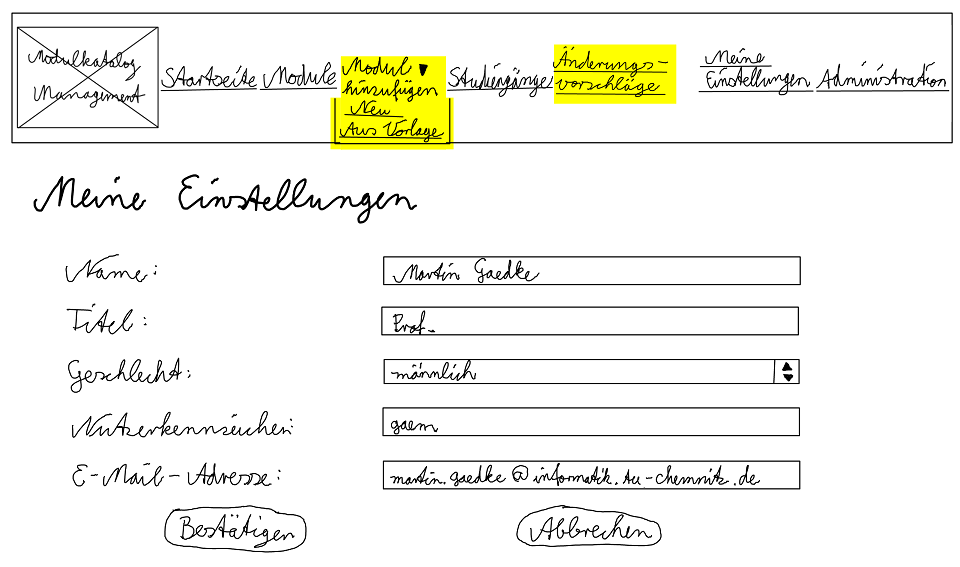 Modulkatalog
Management
Startseite
Module
Modul ▼
hinzufügen
Neu
Aus Vorlage
Studiengänge
Änderungs-
vorschläge
Meine
Einstellungen
Administration
Meine Einstellungen
Name: Martin Gaedke
Titel: Prof.
Geschlecht: männlich
Nutzerkennzeichen: gaem
E-Mail-Adresse: martin.gaedke@informatik.tu-chemnitz.de
Bestätigen Abbrechen